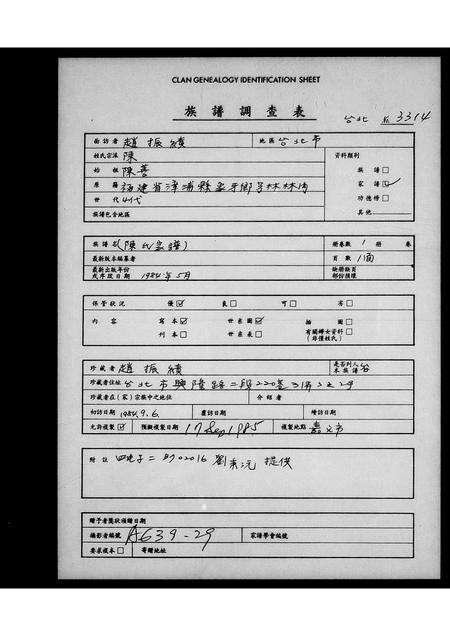 CLAN GENEALOGY IDENTIFICATION SHEET
族譜調查表
台北 № 3314
面訪者 趙振績 地區 台北市
姓氏宗派 陳 資料類別
始祖 陳善 族譜□
原籍 福建省漳浦縣 家譜☑
世代 4代 功德榜□
族譜包含地區 其他
族譜名(陳氏家譜) 冊卷數 1 卷
最新版本編纂者 頁數 1面
最新出版年份或序跋日期 1984年5月 缺冊缺頁部份損壞
保管狀況 優☑ 良□ 可□ 劣□
內容 寫本☑ 世系圖☑ 插圖□
刊本□ 世系表□ 有關婦女資料□(非僅姓氏)
珍藏者 趙振績 是否列入本族譜 否
珍藏者住址 台北市興隆路二段220巷3弄 29
珍藏者在(家)宗族中之地位 介紹者
初訪日期 1984.9.6. 覆訪日期 續訪日期
允許複製☑ 預擬複製日期 17 Sep 1985 複製地點 嘉义市
附註 02016 劉 提供
贈予者獎狀預贈日期
攝影者編號 A639-29 家譜學會編號
要求複本□ 寄贈地址